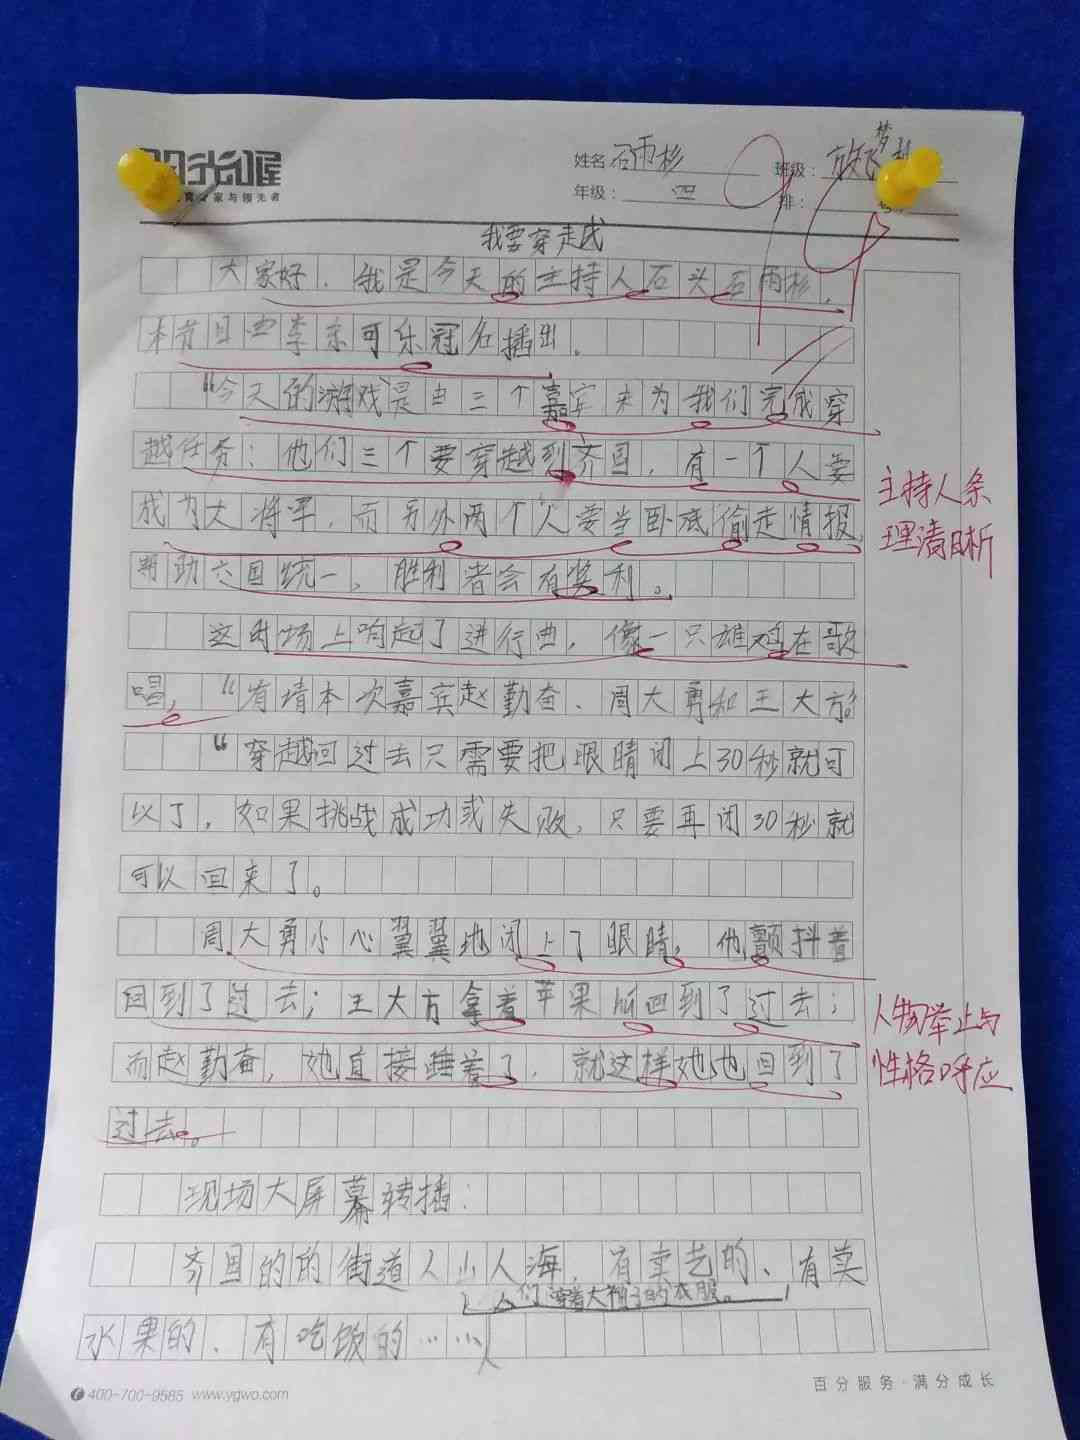 姓名 石雨杉
班级: 放飞梦
年级: 四
排:
我要穿越
大家好，我是今天的主持人石头石雨杉，
本节目由李东可乐冠名播出。
“今天的游戏是由三个嘉宾来为我们完成穿
越任务：他们三个要穿越到齐国，有一个人要
成为大将军，而另外两个人要当卧底偷走情报，
帮助六国统一，胜利者会有奖利。
这时场上响起了进行曲，像一只雄鸡在歌
唱，“有请本次嘉宾赵勤奋、周大勇和王大方。
“穿越回过去只需要把眼睛闭上30秒就可
以了，如果挑战成功或失败，只要再闭30秒就
可以回来了。
周大勇小心翼翼地闭上了眼睛，他颤抖着
回到了过去；王大方拿着苹果所回到了过去；
而赵勤奋，她直接睡着了，就这样她也回到了
过去。
现场大屏幕转播：
齐国的的街道人山人海，有卖艺的、有卖
人们穿着大袖子的衣服。
水果的、有吃饭的……
主持人条
理清晰
人物举止与
性格呼应
400-700-9585 www.ygwo.com
百分服务·满分成长